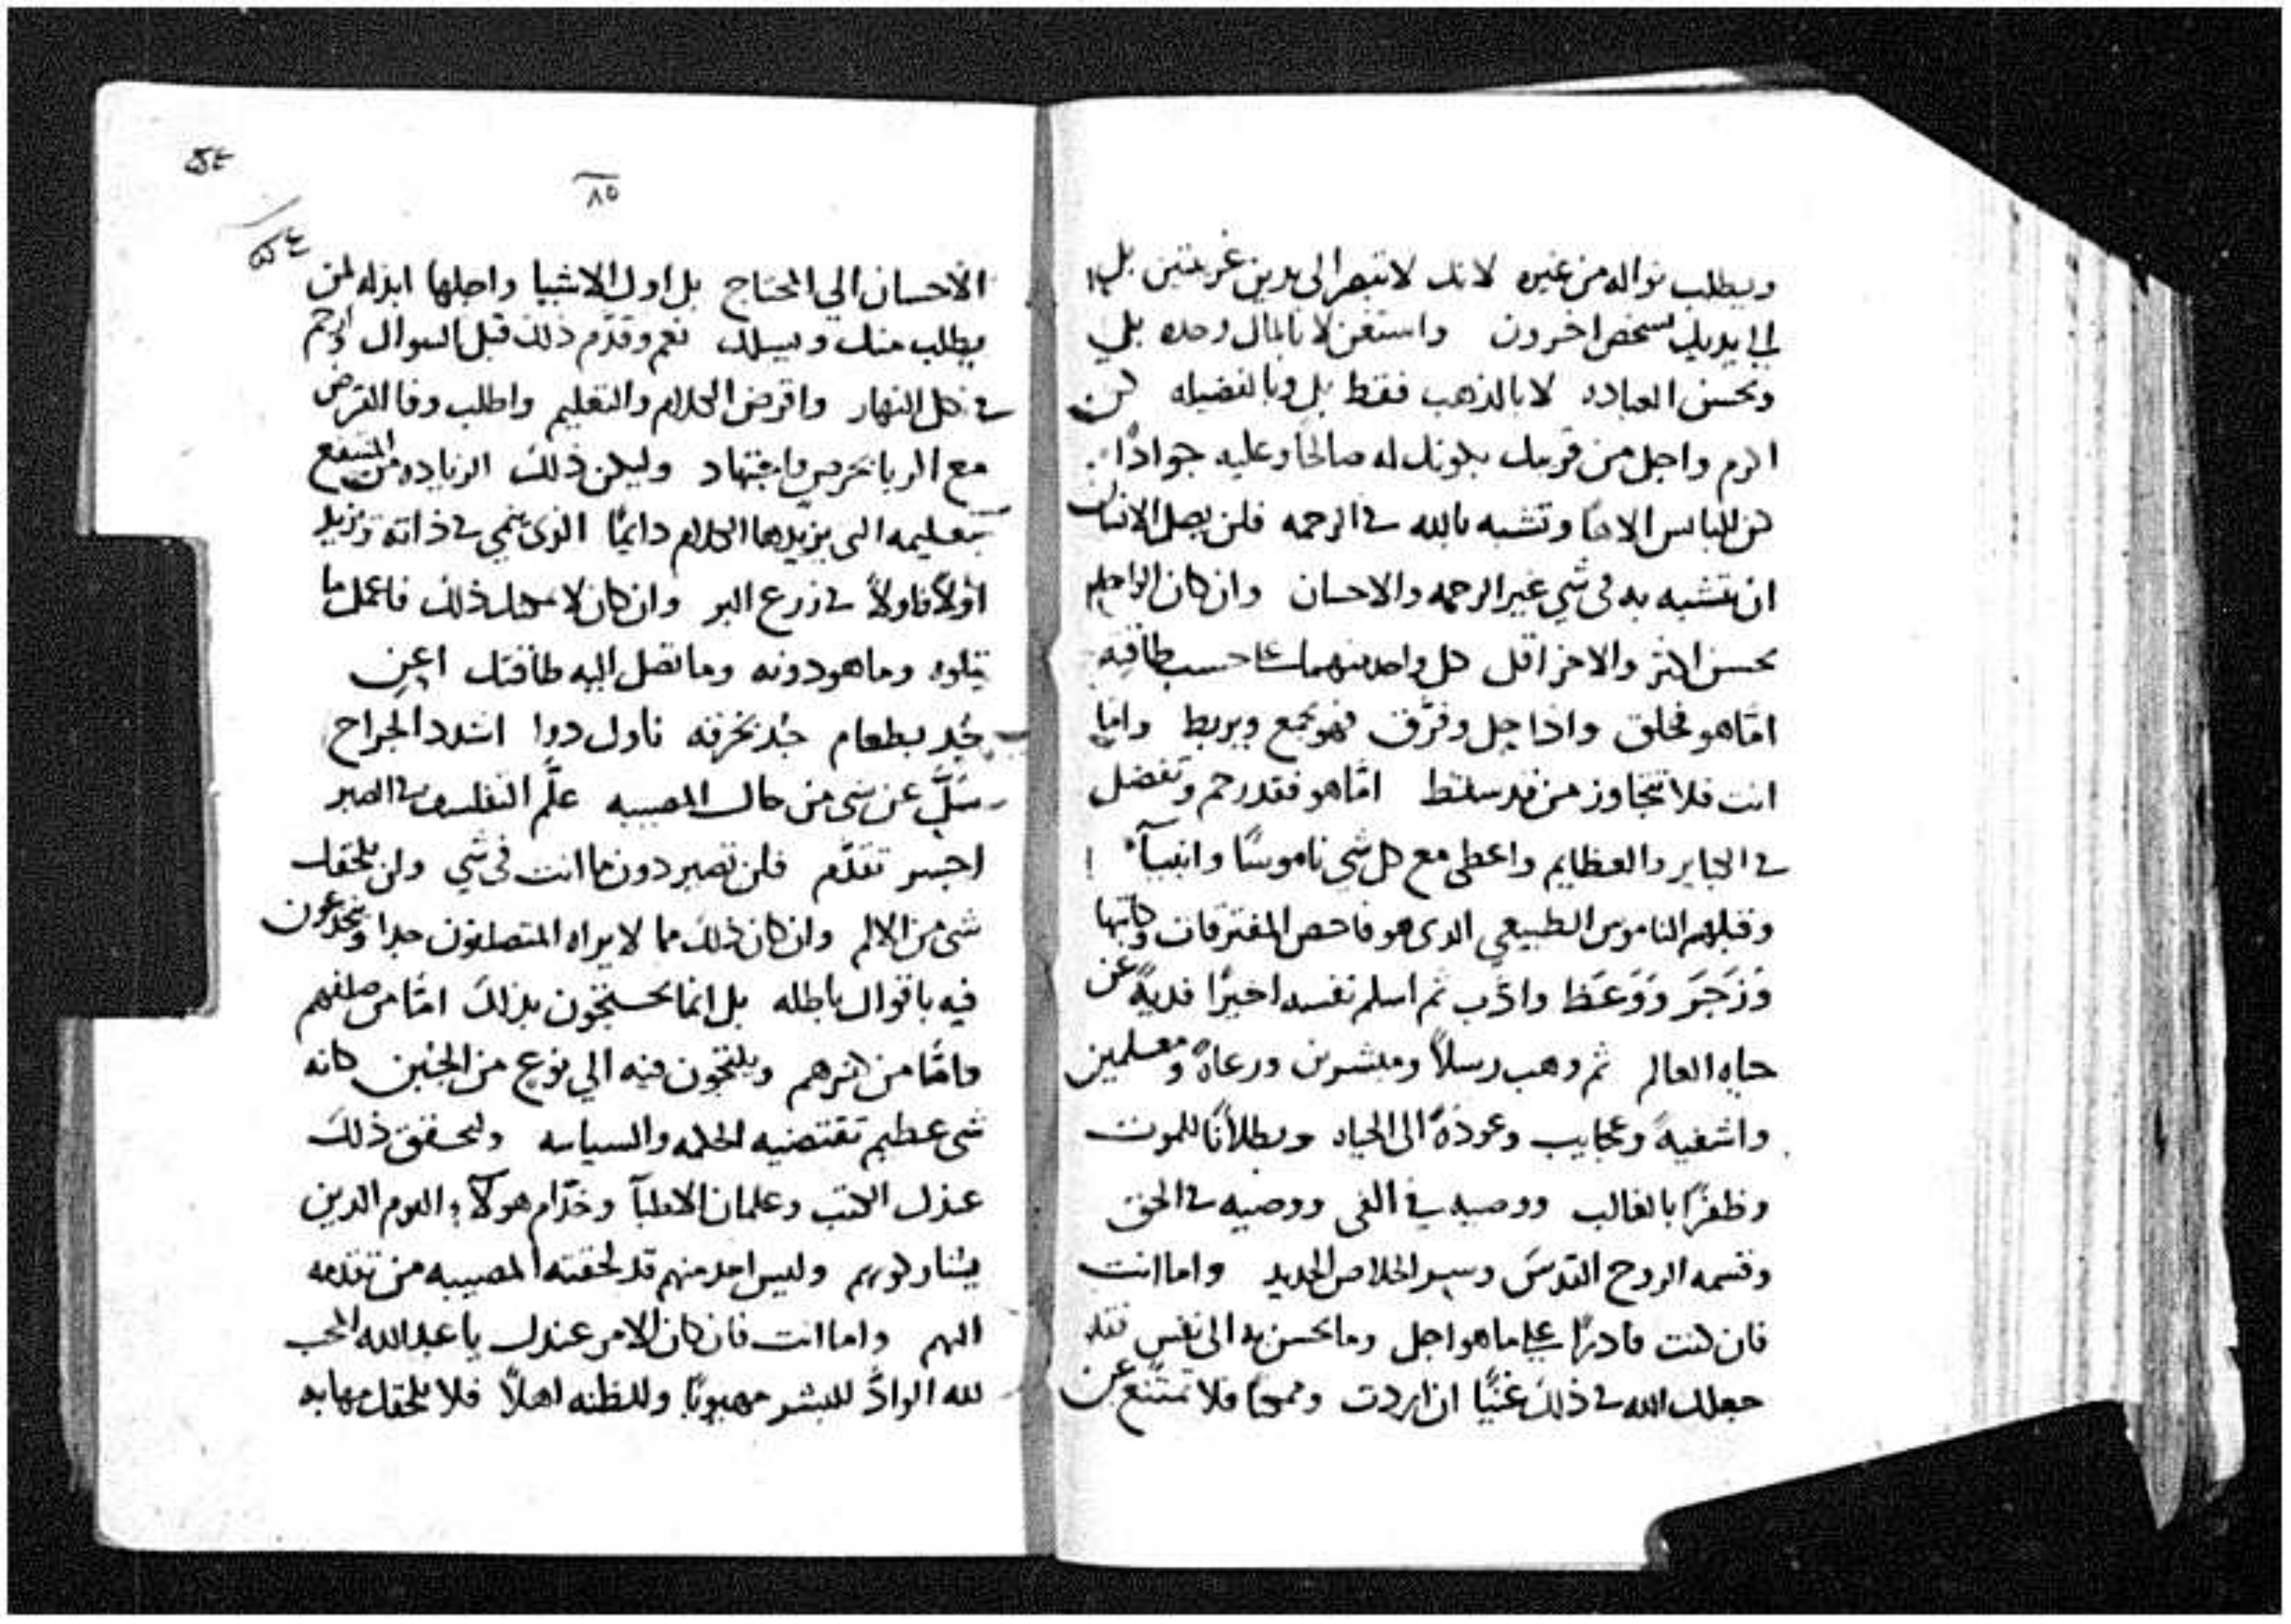 ويطلب نواله من غيره لانك لا تبصر الى يدين غريبتين بل
الى يديك شخص اخرون واستغن لا بالمال وحده بل
وبحسن العباده لا بالذهب فقط بل وبالفضيله كن
اكرم واجل من قريبك بكونك له صالحًا وعليه جوادًا
كن للبايس الاهًا وتشبه بالله في الرحمه فلن يصل الانسان
ان يتشبه به في شي غير الرحمه والاحسان وان كان الواحد
يحسن اكثر والاخر اقل كل واحد منهما على حسب طاقته
امّا هو فخلق واذا حل وفرّق فهو يجمع ويربط وامّا
انت فلا تتجاوز من قد سقط امّا هو فقد رحم وتفضل
في الكباير والعظايم واعطى مع كل شي ناموسًا وانبيآء
وقبلهم الناموس الطبيعي الدى هو فاحص المفترقات وكاتبها
وَزَجَرَ وَوَعَظ وادَّب ثم اسلم نفسه اخيرًا فديةً عن
حياه العالم ثم وهب رسلاً ومبشرين ورعاةً ومعلمين
واشفيةً وعجايب وعودةً الى الحياه وبطلانًا للموت
وظفرًا بالغالب ووصيه في الفى ووصيه في الحق
وقسمه الروح القدس وسر الخلاص الجديد واما انت
فان كنت قادرًا على ما هو اجل وما يحسن به الى نفس فقد
جعلك الله في ذلك غنيًّا ان اردت فلا تمتنع عن
٨٥
الاحسان الي المحتاج بل اول الاشيا واجلها ابذله لمن
يطلب منك ويسلك نعم وقدّم ذلك قبل السوال ارحم
في كل النهار واقرض الكلام والتعليم واطلب وفا القرض
مع الربا بحرص واجتهاد وليكن ذلك الزياده من المنتفع
بتعليمه التى يزيدها الكلام دايمًا الذى ينمي في ذاته وتزيد
اوّلاً فاولاً في زرع البر وان كان لا يمكنك ذلك فاعمل ما
يتلوه وما هو دونه وما تصل اليه طاقتك اعن
جُد بطعام جُد بخرقه ناول دوا اشدد الجراح
سَل عن شى من حال المصيبه علّم التفلسف في الصبر
اجسر تقدّم فلن تصير دون ما انت في شي ولن يلحقك
شى من الالم وان كان ذلك مما لا يراه المتصلفون جدا وينخدعون
فيه باقوال باطله بل انما يحتجّون بذلك امّا من صلفهم
وامّا من كبرهم ويلتجون فيه الي نوع من الجبن كانه
شى عظيم تقتضيه الحكمه والسياسه وليحقق ذلك
عندك الكتب وغلمان الاطبآ وخدّام هولآء القوم الدين
يشاركونهم وليس احد منهم قد لحقته المصيبه من تقدمه
اليهم واما انت فان كان الامر عندك يا عبد الله المحب
لله الوادّ للبشر مهيوبًا وللظنه اهلاً فلا يلحقك مهابه